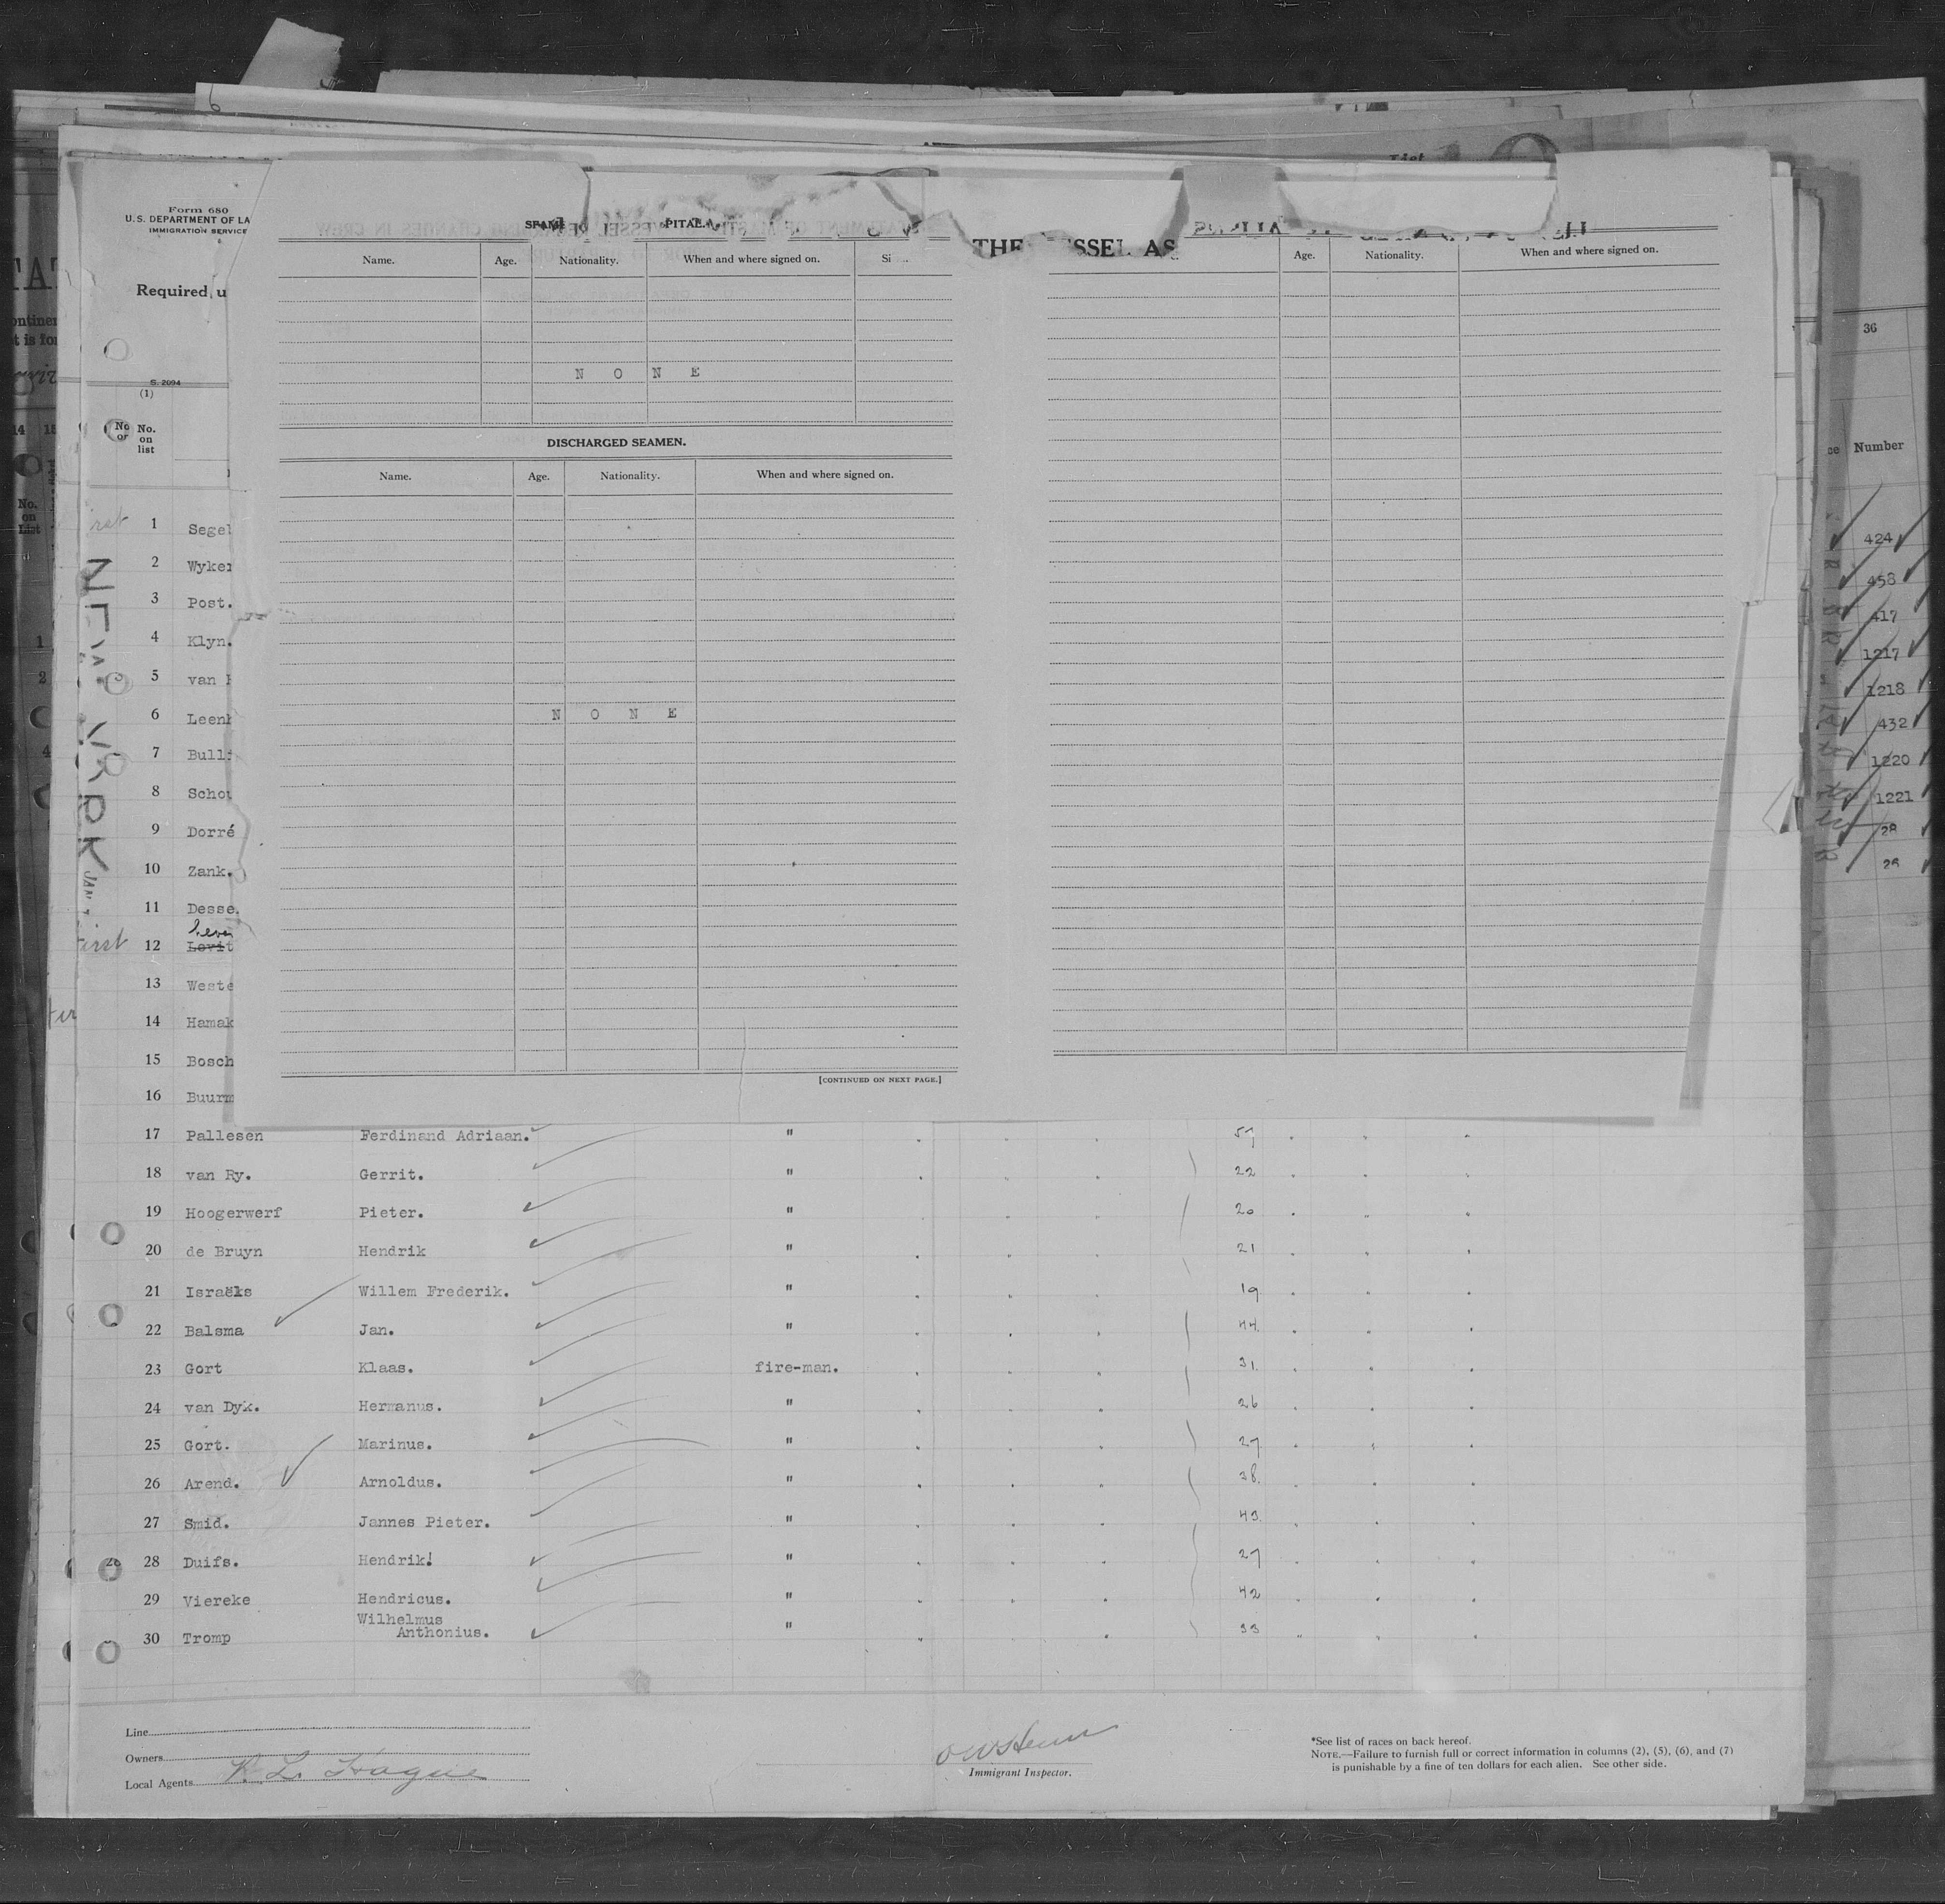 List
Form 680
U.S. DEPARTMENT OF LA
IMMIGRATION SERVICE
Required, u
S. 2094
(1)
No. on list
THE SSEL AS
Name. Age. Nationality. When and where signed on.
N O N E
DISCHARGED SEAMEN.
Name. Age. Nationality. When and where signed on.
N O N E
[CONTINUED ON NEXT PAGE.]
Age. Nationality. When and where signed on.
36
Number
424
458
417
1217
1218
432
1220
1221
28
No. on List
NEW YORK
1 Segel
2 Wyker
3 Post.
4 Klyn.
5 van
6 Leenh
7 Bulli
8 Schou
9 Dorré
10 Zank.
11 Desse.
first 12 Levit
13 Weste
14 Hamak
15 Bosch
16 Buurm
17 Pallesen Ferdinand Adriaan. " 57
18 van Ry. Gerrit. " 22
19 Hoogerwerf Pieter. " 20
20 de Bruyn Hendrik " 21
21 Israëls Willem Frederik. " 19
22 Balsma Jan. " 44.
23 Gort Klaas. fire-man. 31.
24 van Dyk. Hermanus. " 26
25 Gort. Marinus. " 27
26 Arend. Arnoldus. " 38.
27 Smid. Jannes Pieter. " 43.
28 Duifs. Hendrik! " 27
29 Viereke Hendricus. " 42
30 Tromp Wilhelmus Anthonius. " 33
Line
Owners
Local Agents
Immigrant Inspector.
*See list of races on back hereof.
NOTE.—Failure to furnish full or correct information in columns (2), (5), (6), and (7)
is punishable by a fine of ten dollars for each alien. See other side.